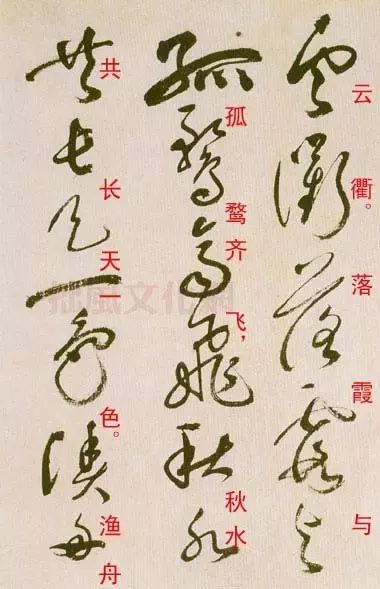 云衢。落霞与
孤鹜齐飞，秋水
共长天一色。渔舟